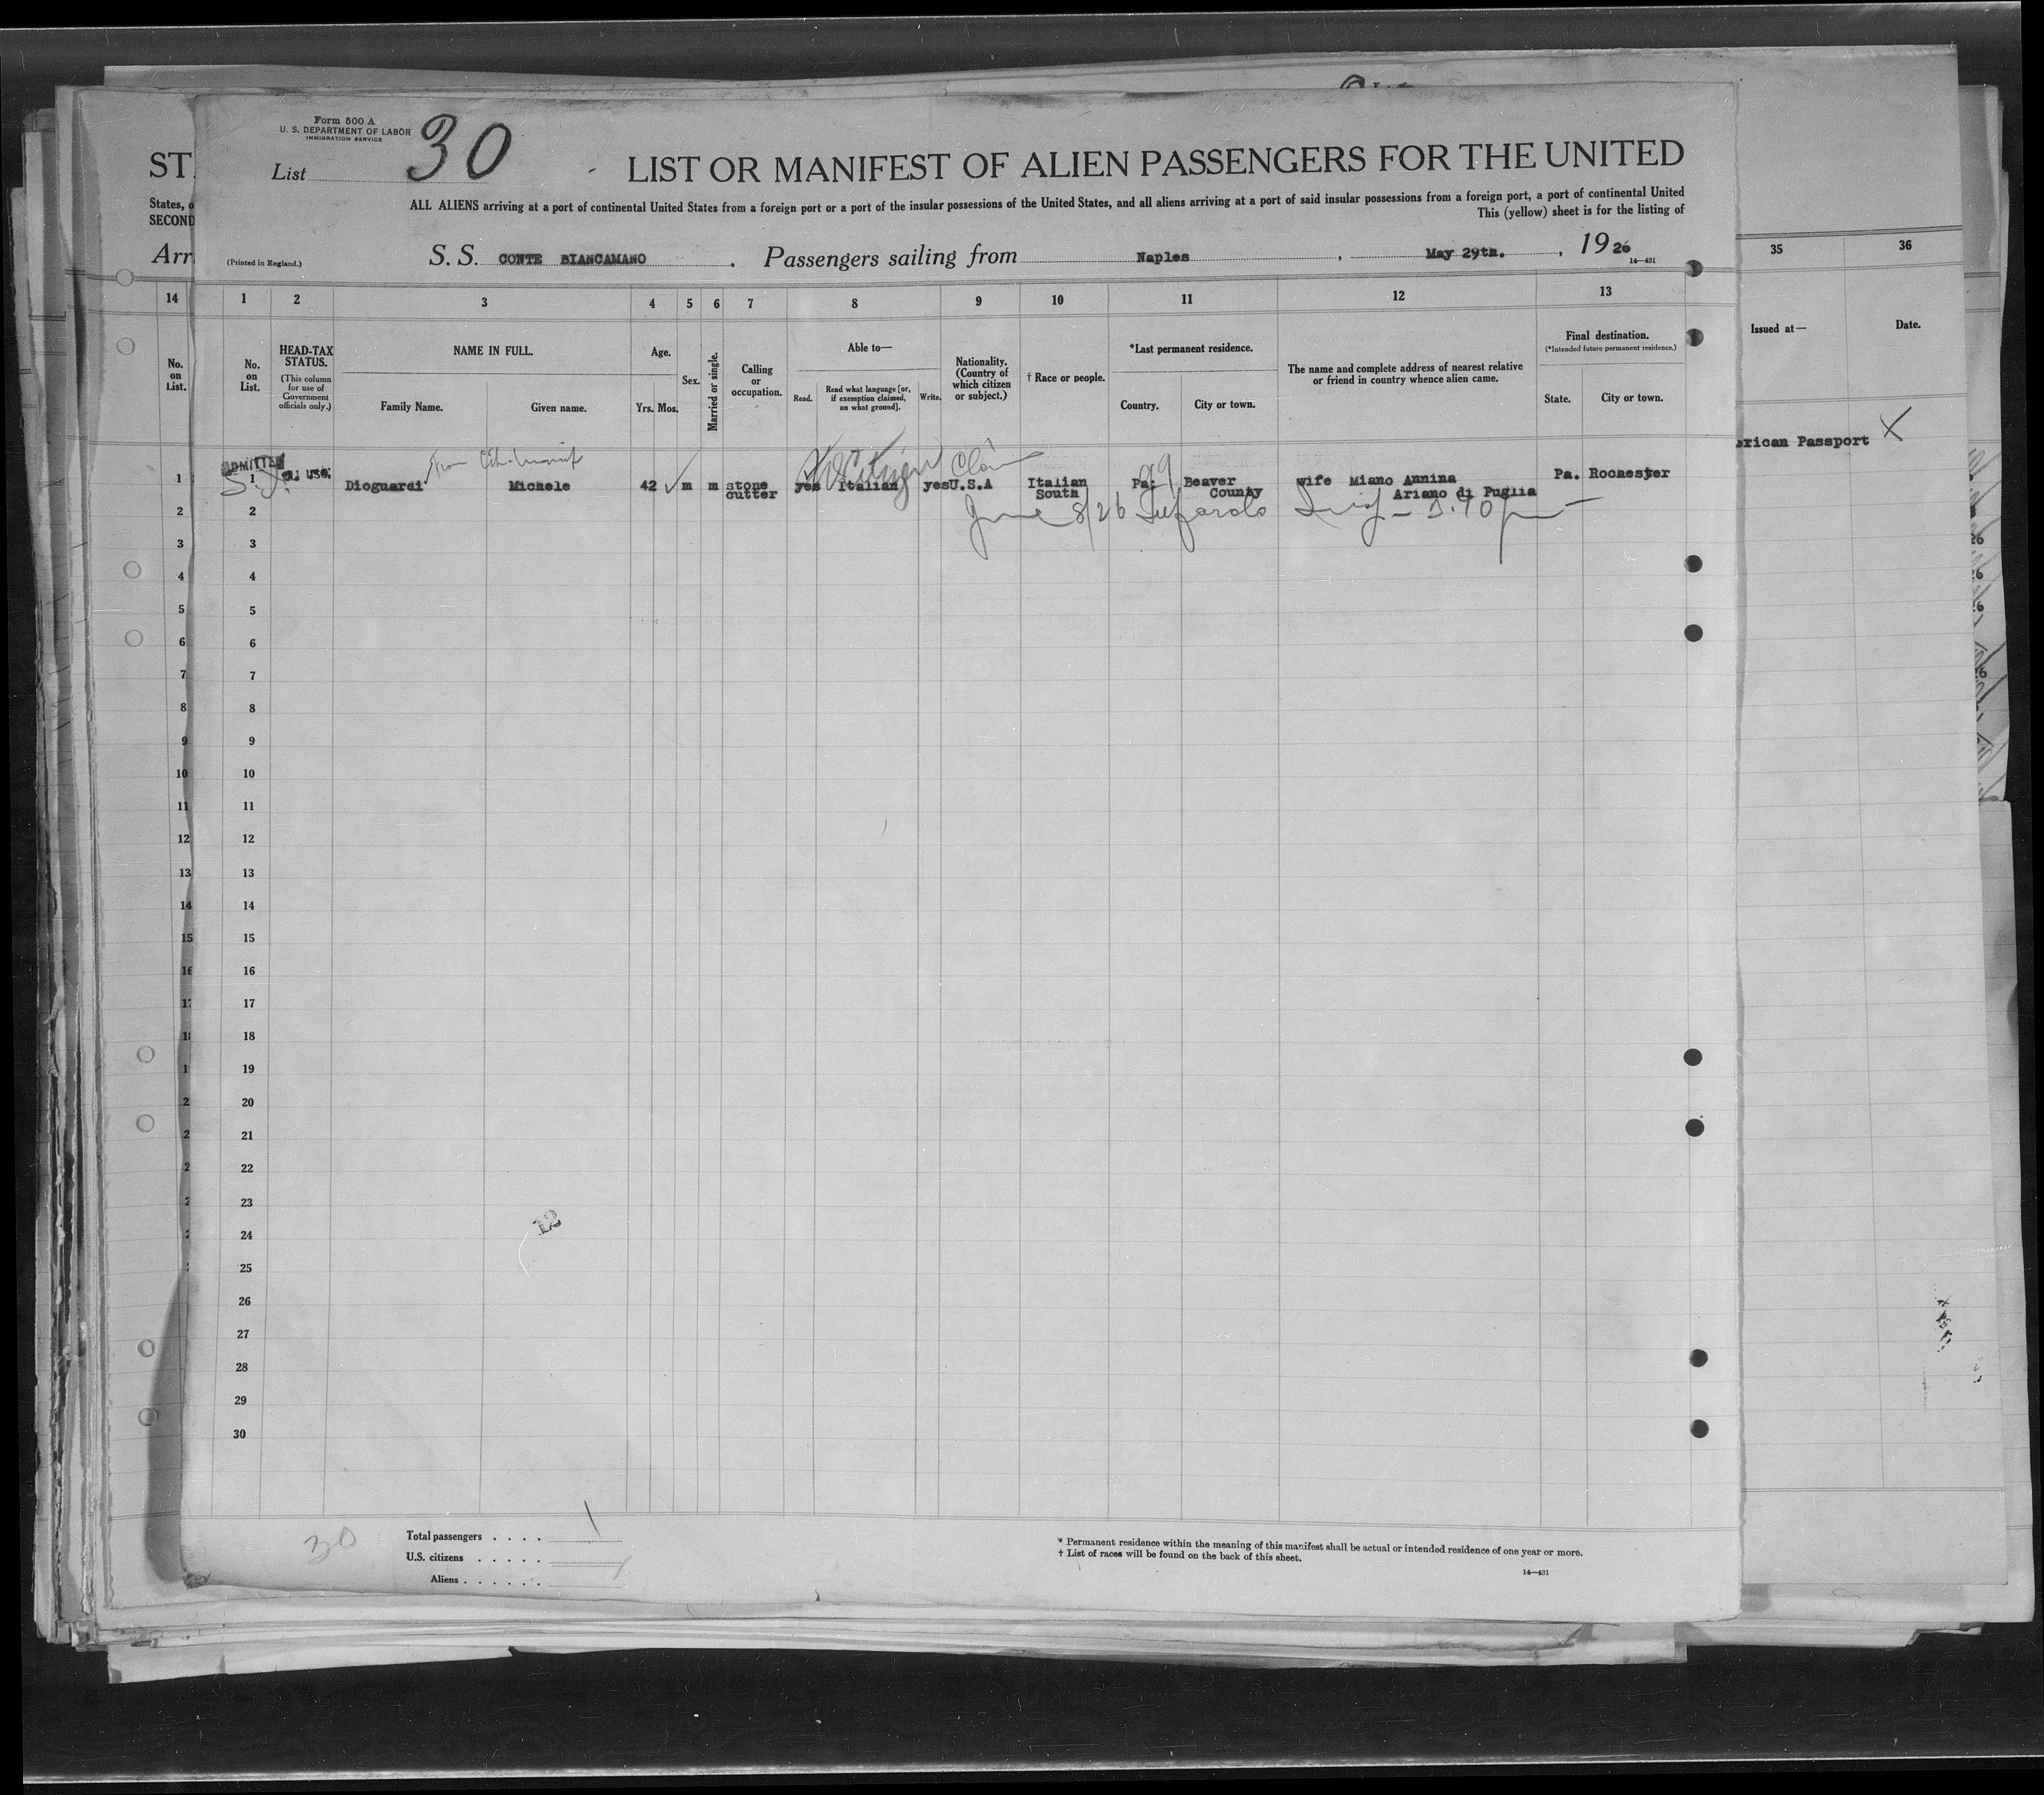 Form 500 A
U. S. DEPARTMENT OF LABOR
IMMIGRATION SERVICE
List 30
LIST OR MANIFEST OF ALIEN PASSENGERS FOR THE UNITED
ALL ALIENS arriving at a port of continental United States from a foreign port or a port of the insular possessions of the United States, and all aliens arriving at a port of said insular possessions from a foreign port, a port of continental United
This (yellow) sheet is for the listing of
ST
States, o
SECOND
Arr
(Printed in England.)
S. S. CONTE BIANCAMANO . Passengers sailing from Naples , May 29th. , 19 26
14—431
14 1 2 3 4 5 6 7 8 9 10 11 12 13 35 36
No. on List.
No. on List.
HEAD-TAX STATUS.
(This column for use of Government officials only.)
NAME IN FULL.
Family Name. Given name.
Age.
Yrs. Mos.
Sex.
Married or single.
Calling or occupation.
Able to—
Read. Read what language [or, if exemption claimed, on what ground]. Write.
Nationality. (Country of which citizen or subject.)
† Race or people.
*Last permanent residence.
Country. City or town.
The name and complete address of nearest relative or friend in country whence alien came.
Final destination.
(*Intended future permanent residence.)
State. City or town.
Issued at— Date.
erican Passport X
ADMITTED
US Citizen Claim
1 1 Dioguardi Michele 42 m m stone cutter yes Italian yes U.S.A Italian South Pa. Beaver County wife Miano Annina Ariano di Puglia Pa. Rochester
99
June 8/26
2 2
3 3
4 4
5 5
6 6
7 7
8 8
9 9
10 10
11 11
12 12
13 13
14 14
15 15
16 16
17 17
18 18
19 19
20 20
21 21
22 22
23
24
25
26
27
28
29
30
12
30
Total passengers . . . . 1
U.S. citizens . . . . .
Aliens . . . . . .
* Permanent residence within the meaning of this manifest shall be actual or intended residence of one year or more.
† List of races will be found on the back of this sheet.
14—431